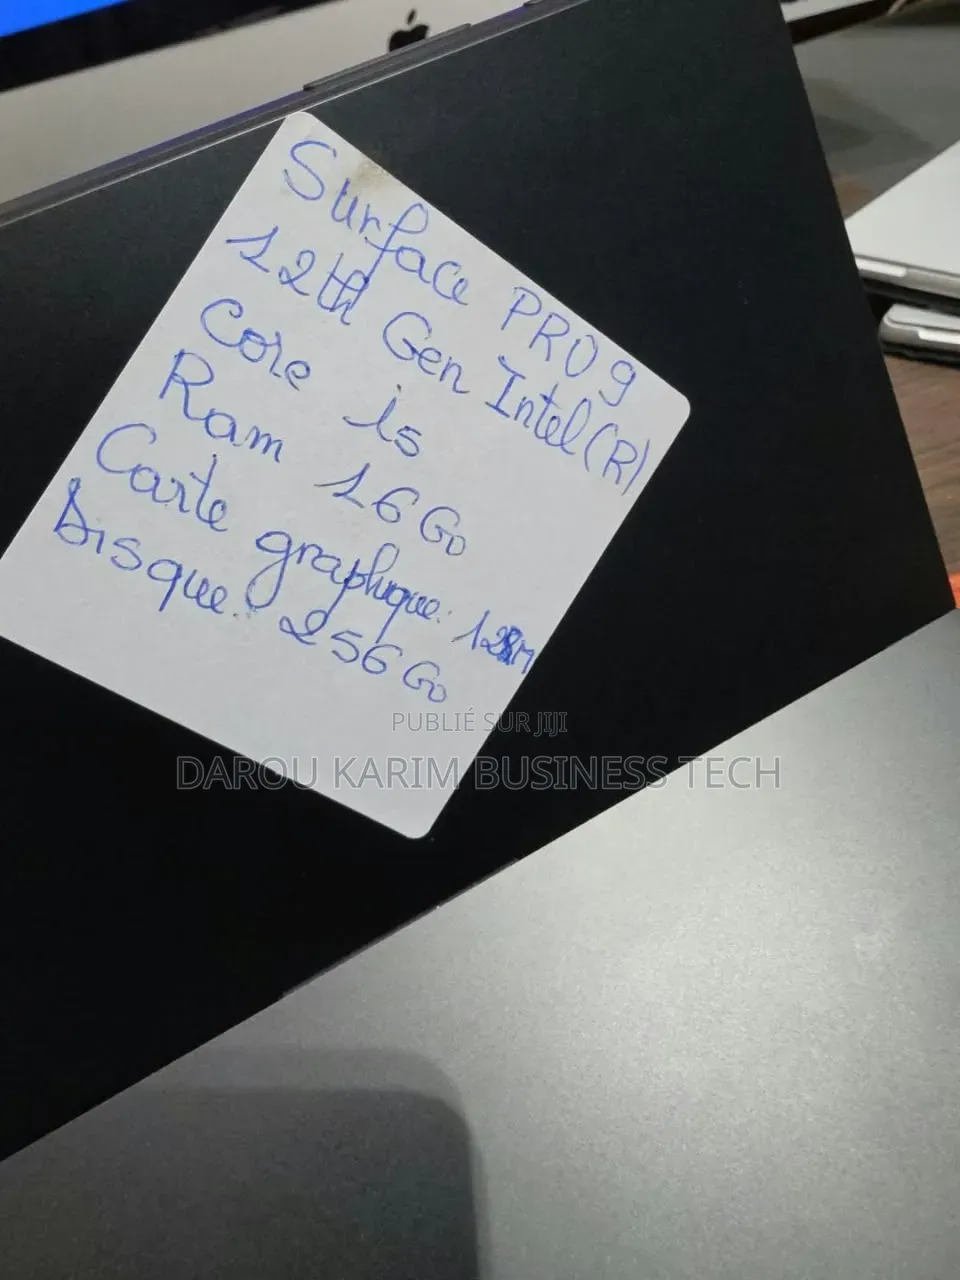 Surface PRO 9
12th Gen Intel(R)
Core i5
Ram 16 Go
Carte graphique: 128M
Disque: 256 Go
PUBLIÉ SUR JIJI
DAROU KARIM BUSINESS TECH